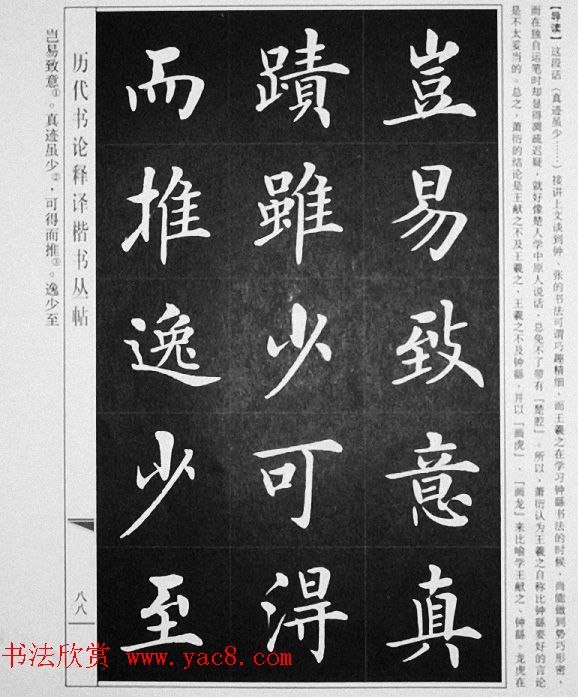 【导读】这段话（真迹虽少……）接讲上文谈到钟、张的书法可谓巧趣精细，而王羲之在学习钟繇书法的时候，尚能做到势巧形密，
而在独自运笔时却显得凋疏迟疑，就好像楚人学中原人说话，总免不了带有『楚腔』。所以，萧衍认为王羲之自称比钟繇要好的言论
是不太妥当的。总之，萧衍的结论是王献之不及王羲之，王羲之不及钟繇，并以『画虎』、『画龙』来比喻学王献之、钟繇。龙虎在
豈易致意真
蹟雖少可得
而推逸少至
历代书论释译楷书丛帖
八八
岂易致意①。真迹虽少②，可得而推③。逸少至
书法欣赏 www.yac8.com